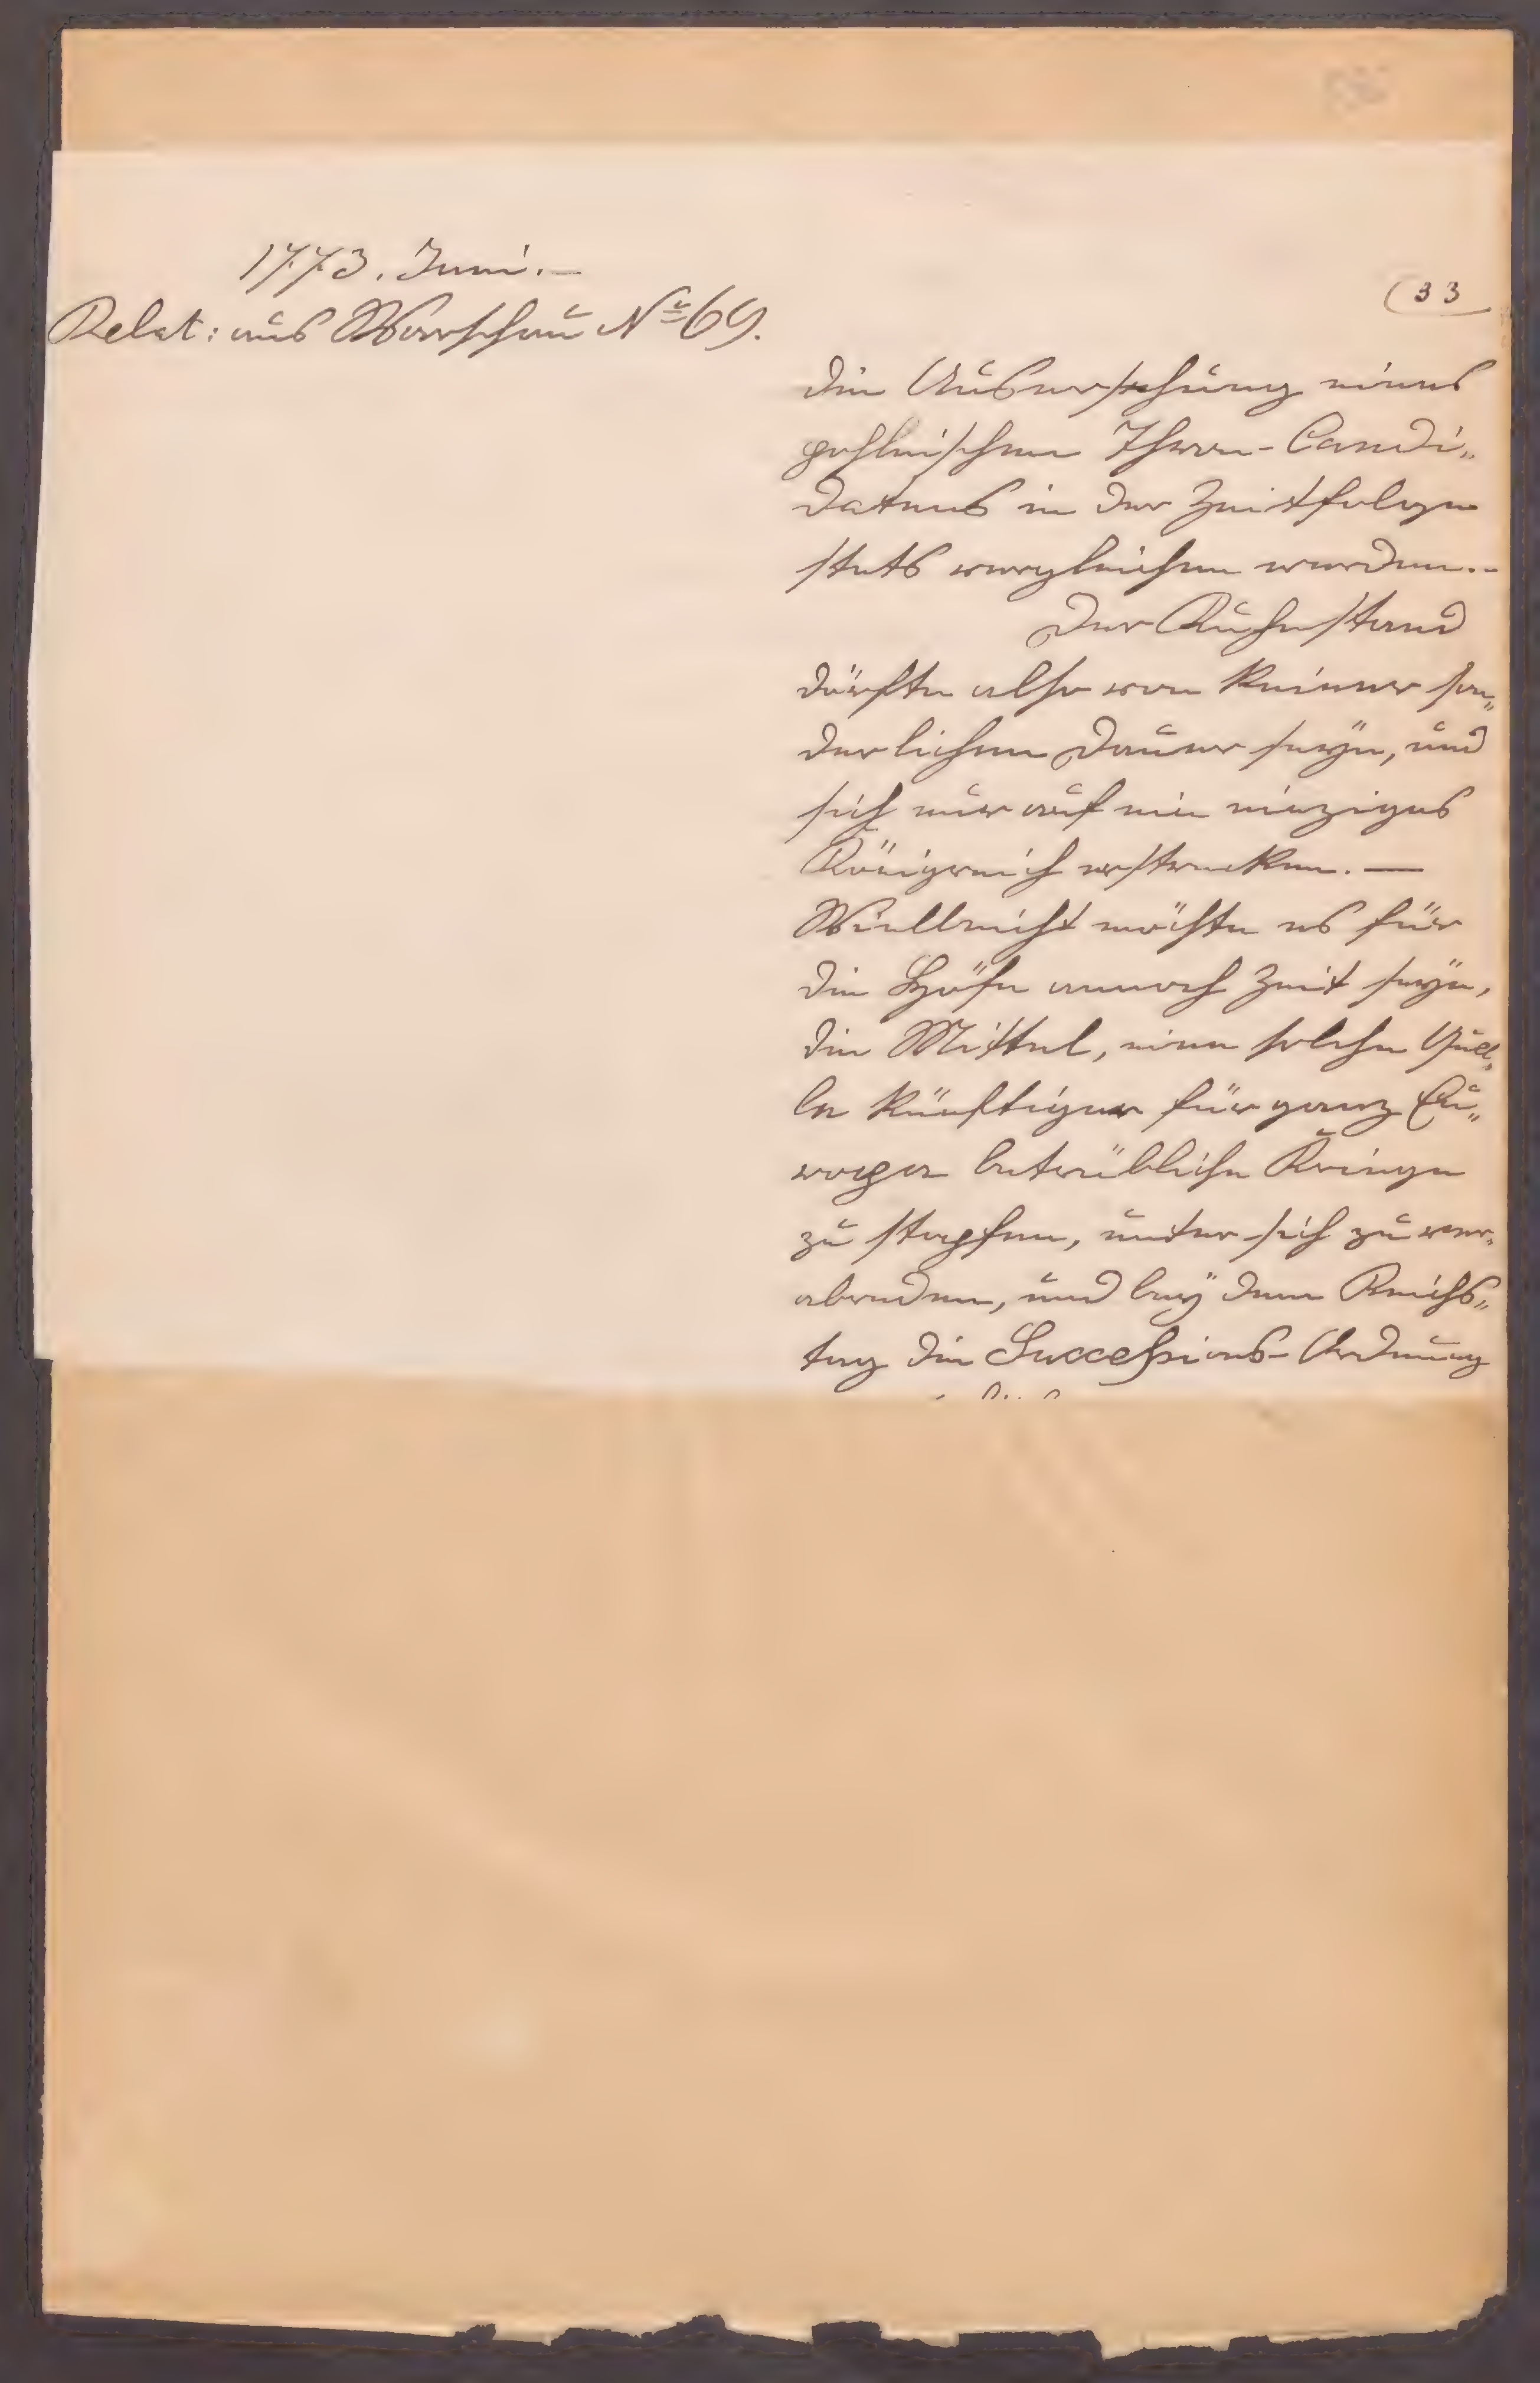 1773. Juni.—
Relat: aus Warschau No 69.
(33
die Ausersehung eines
pohlnischen Thron-Candi„
datens in der Zeitfolge
stets vergleichen werden.–
Der Ruhestand
dörfte also von keiner son„
derlichen Dauer seÿn, und
sich nur auf ein einziges
Königreich erstrecken. —
Vielleicht möchte es für
die Höfe annoch Zeit seÿn,
die Mittel, eine solche Quel„
le künftiger für ganz Eu„
ropa betrübliche Kriege
zu stopfen, unter sich zu ver„
abreden, und beÿ dem Reichs„
tag die Successions-Ordnung